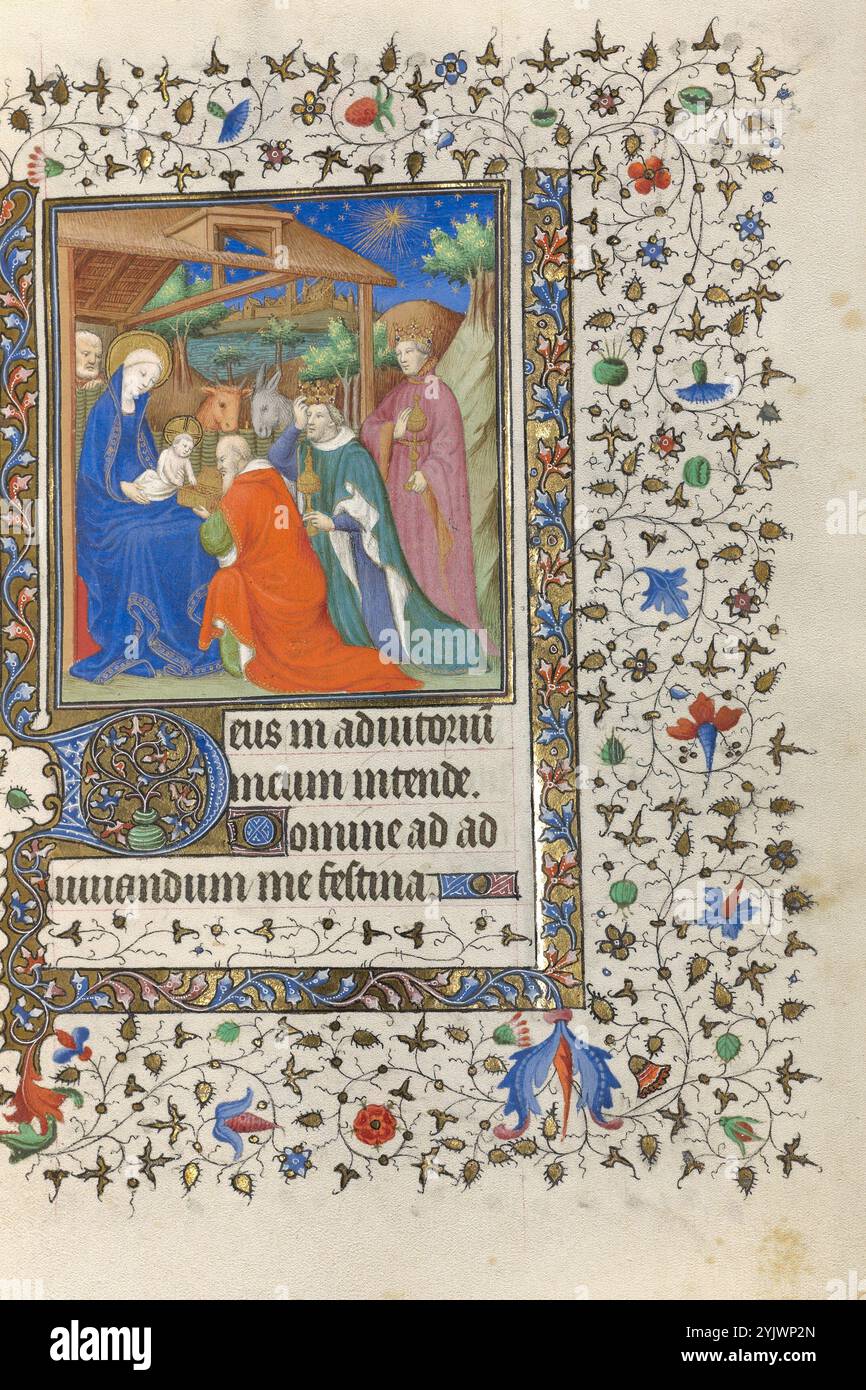 Deus in adiutoriū
meum intende.
Domine ad ad
iuuandum me festina
alamy
Image ID: 2YJWP2N
www.alamy.com